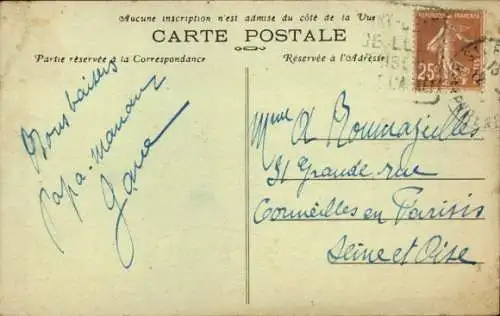 Aucune inscription n'est admise du côté de la Vue
CARTE POSTALE
Partie réservée à la Correspondance
Réservée à l'Adresse
REPUBLIQUE FRANÇAISE
25c
Bons baisers
Papa-Maman
Mme A
31 Grande-rue
Cormeilles en Parisis
Seine et Oise